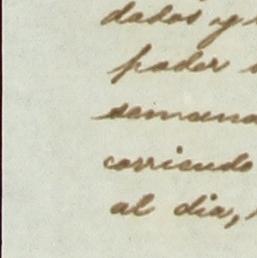 dados y
poder
semana
corriendo
al dia,